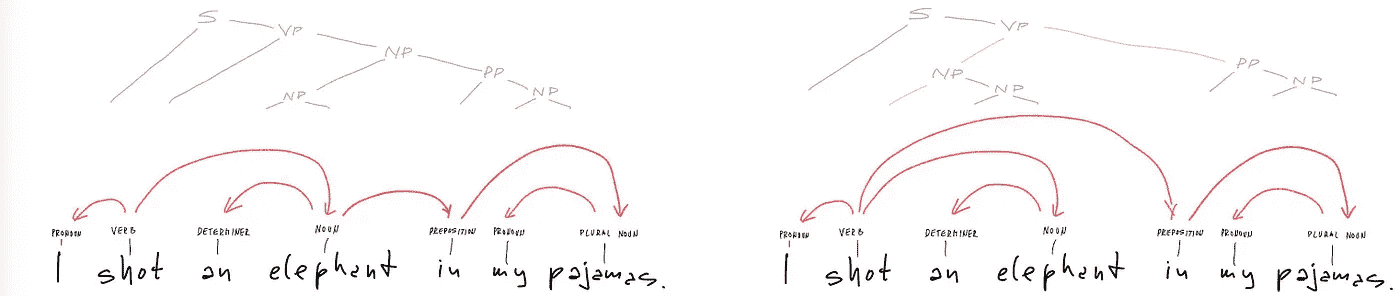 S VP NP PP NP NP
PRONOUN VERB DETERMINER NOUN PREPOSITION PRONOUN PLURAL NOUN
I shot an elephant in my pajamas.
S VP PP NP NP NP
PRONOUN VERB DETERMINER NOUN PREPOSITION PRONOUN PLURAL NOUN
I shot an elephant in my pajamas.